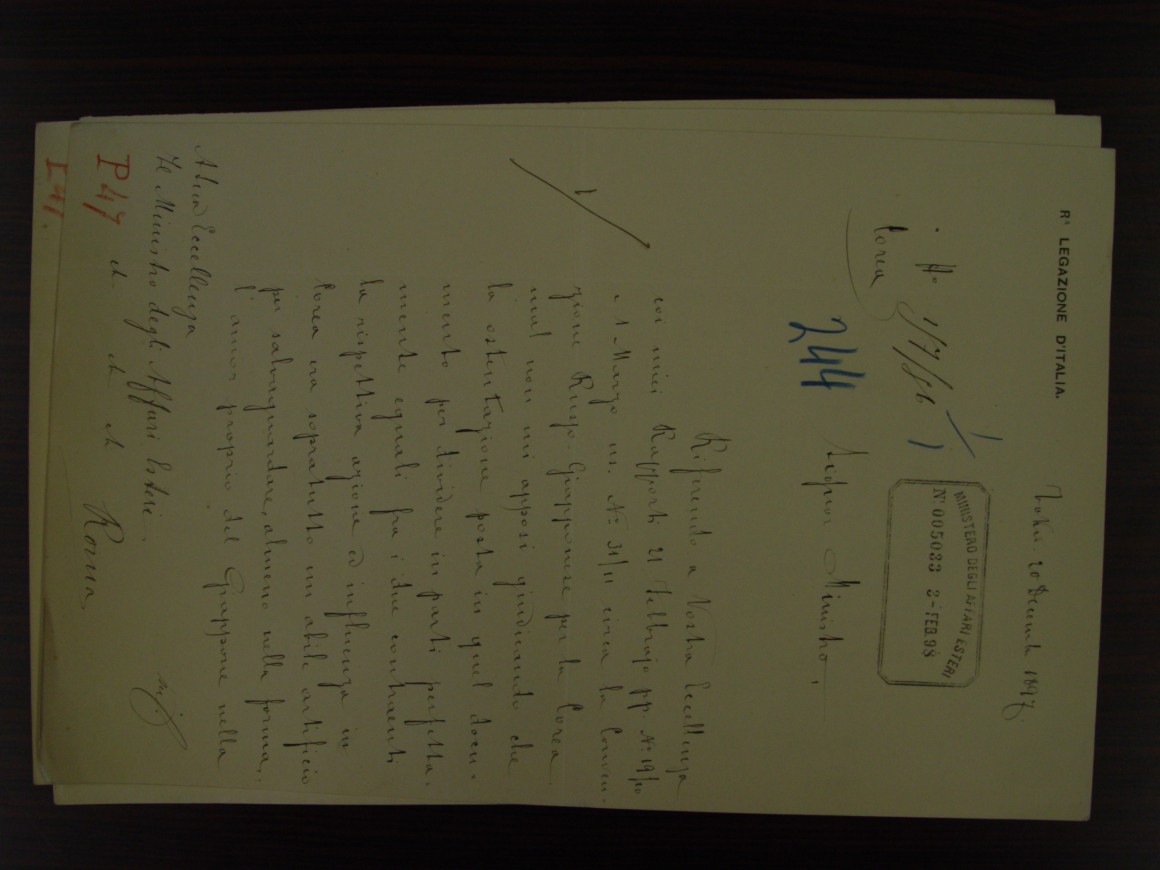 Rᴬ LEGAZIONE D'ITALIA.
Tokio. 20 Decembre 1897.
Nº 157/56
Corea
MINISTERO DEGLI AFFARI ESTERI
Nº 005033 3-FEB.98
244
Signor Ministro,
Riferendo a Vostra Eccellenza
coi miei Rapporti 21 Febbrajo pp. Nº 19/10
e 1 Marzo us. Nº 31/11 circa la Conven-
zione Russo-Giapponese per la Corea
mal non mi apposi giudicando che
la ostentazione posta in quel docu-
mento per dividere in parti perfetta-
mente eguali fra i due contraenti
la rispettiva azione ed influenza in
Corea era sopratutto un abile artificio
per salvaguardare, almeno nella forma,
l'amor proprio del Giappone nella
A Sua Eccellenza
Il Ministro degli Affari Esteri.
et et et Roma
P 47